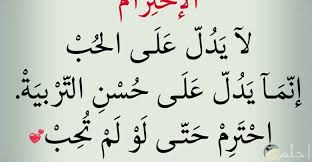 الإحترام
لآ يَدُلّ عَلَى الحُبْ
إنّمَـآ يَدُلّ عَلَى حُسْنِ التّرْبيَةْ.
احْتَرِمْ حَتّى لَوْ لَمْ تُحِبْ
احلم